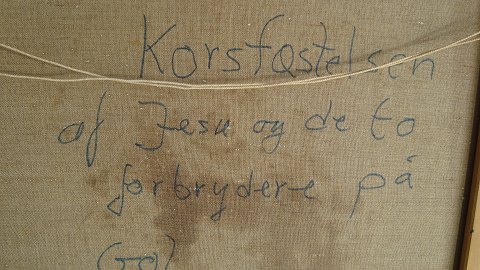 Korsfæstelsen
af Jesu og de to
forbrydere på